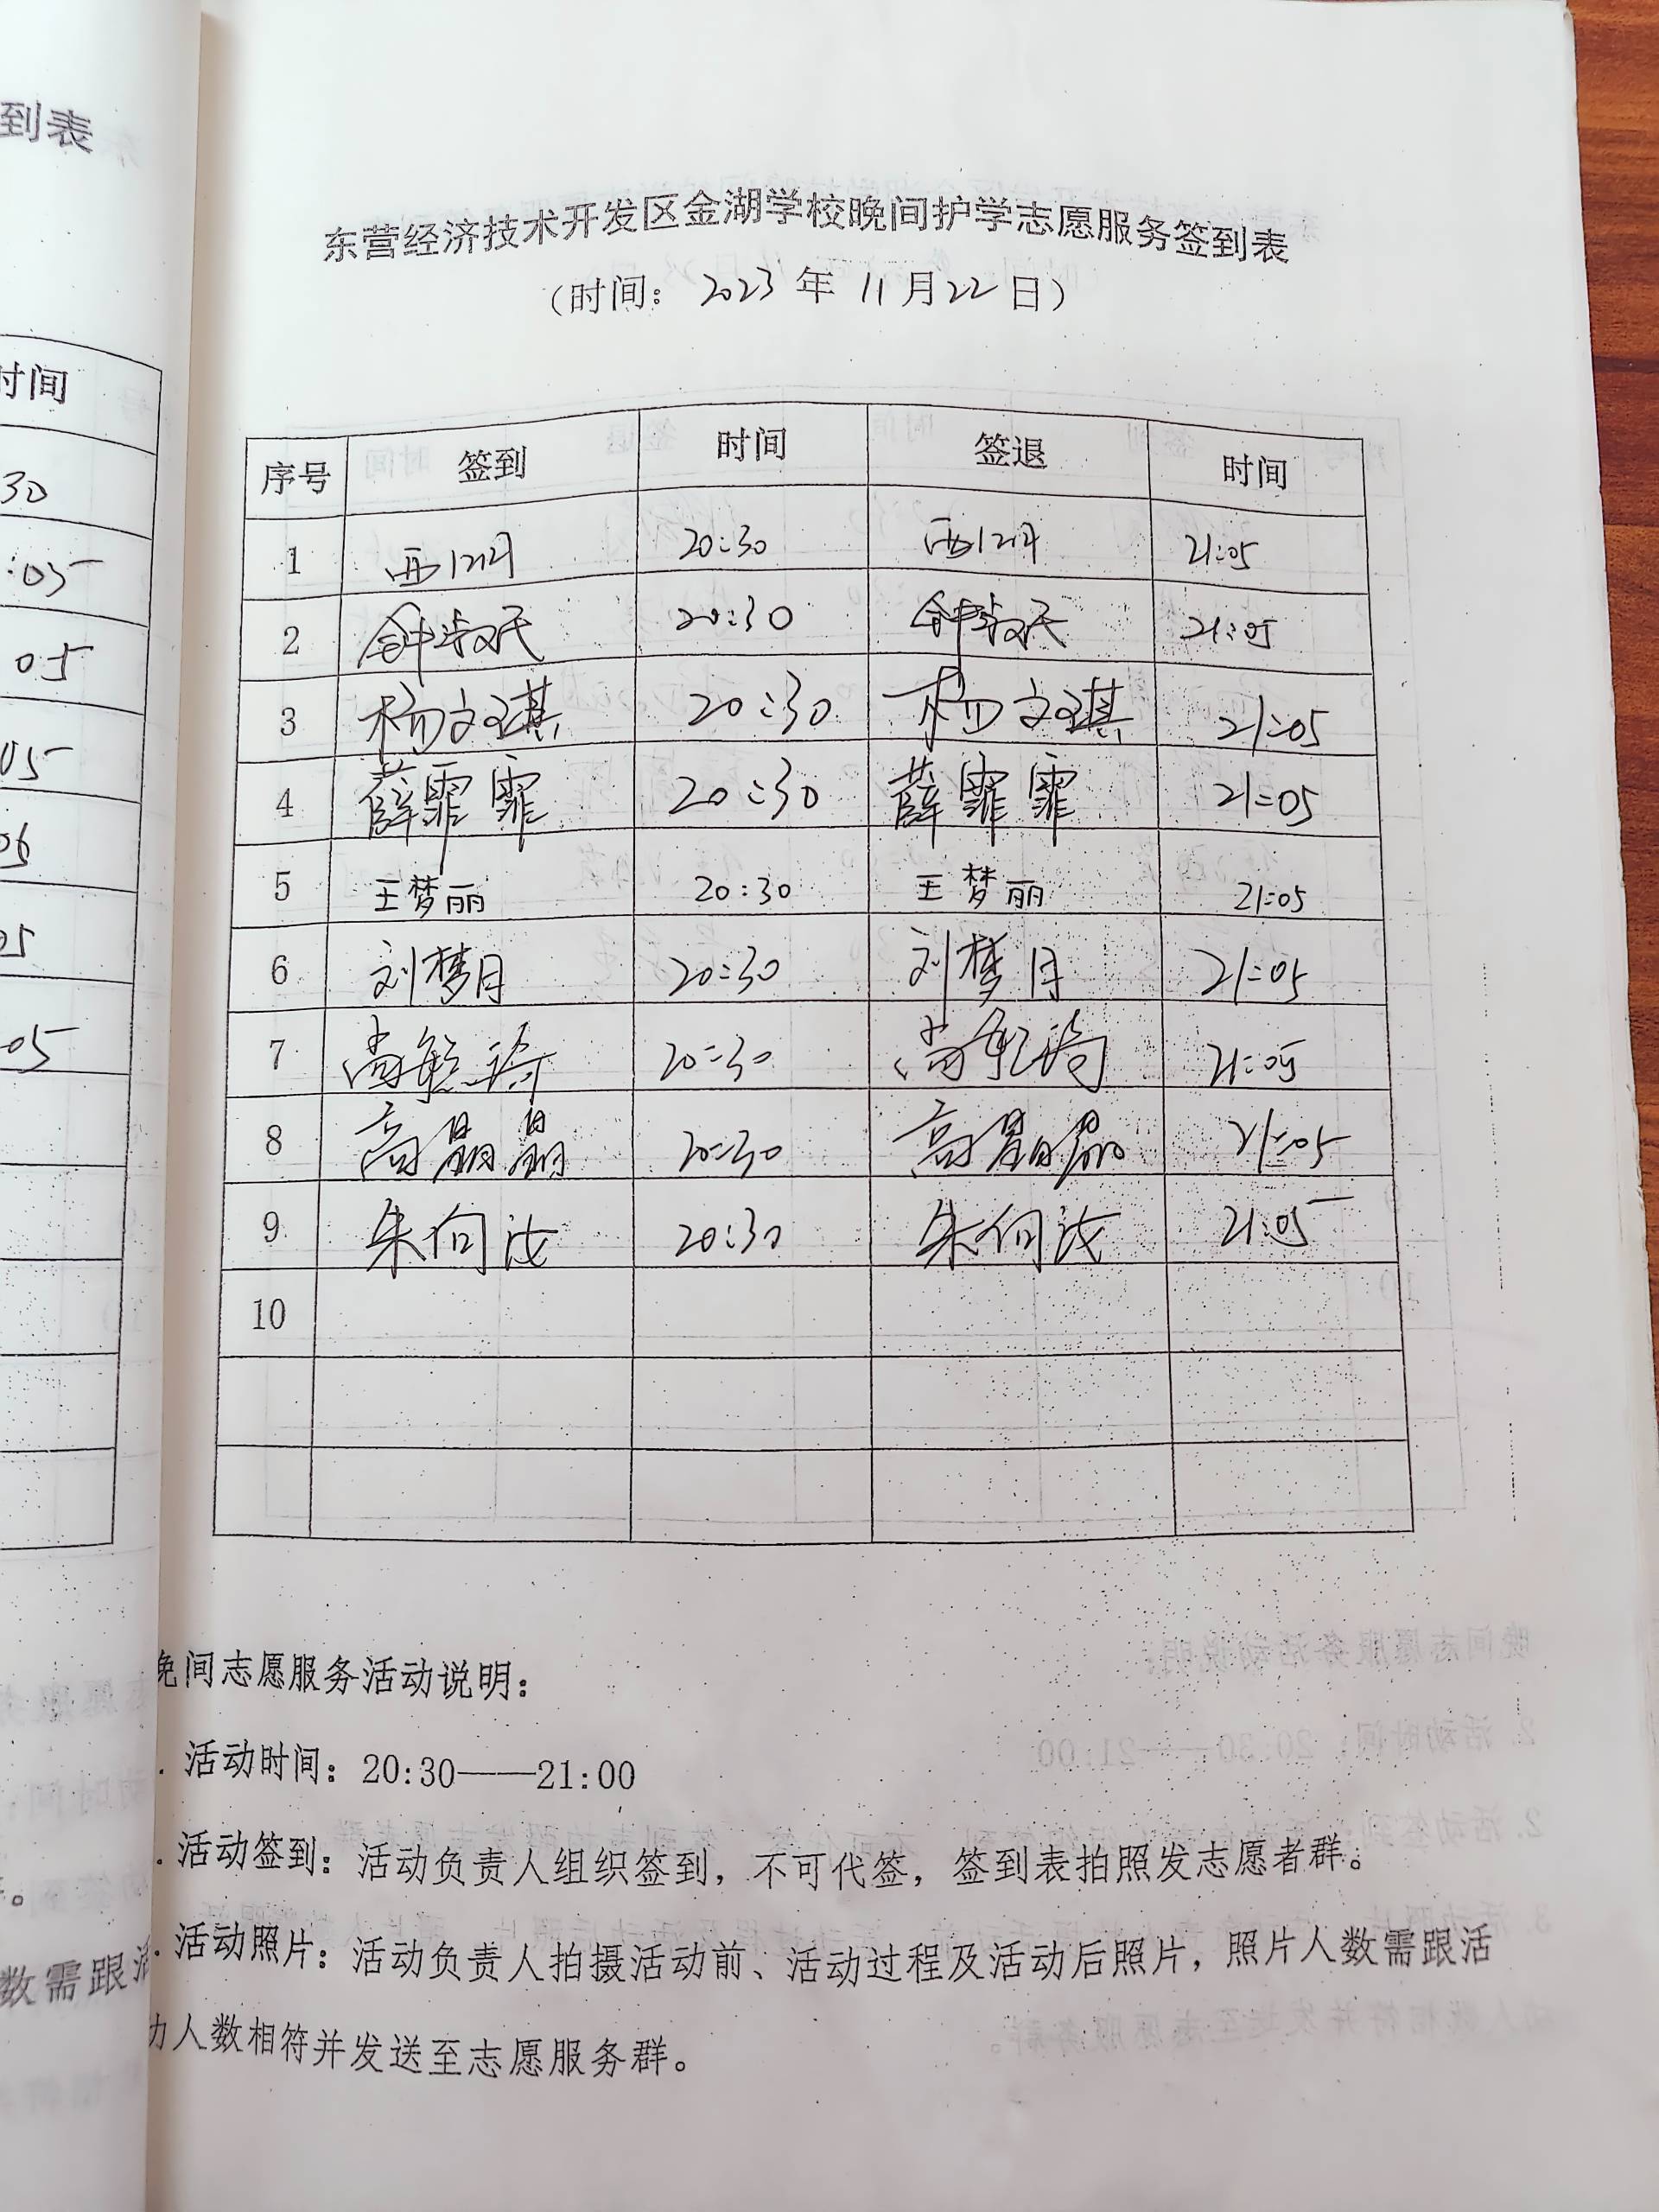 到表
东营经济技术开发区金湖学校晚间护学志愿服务签到表
（时间：2023年11月22日）
时间
序号 签到 时间 签退 时间
1 20:30 21:05
2 20:30 21:05
3 杨文琪 20:30 杨文琪 21:05
4 薛霏霏 20:30 薛霏霏 21:05
5 王梦丽 20:30 王梦丽 21:05
6 刘梦月 20:30 刘梦月 21:05
7 20:30 21:05
8 高晶晶 20:30 高晶晶 21:05
9 20:30 21:05
10
30
:05
05
05
06
05
05
晚间志愿服务活动说明：
. 活动时间：20:30——21:00
. 活动签到：活动负责人组织签到，不可代签，签到表拍照发志愿者群。
. 活动照片：活动负责人拍摄活动前、活动过程及活动后照片，照片人数需跟活
动人数相符并发送至志愿服务群。
数需跟活